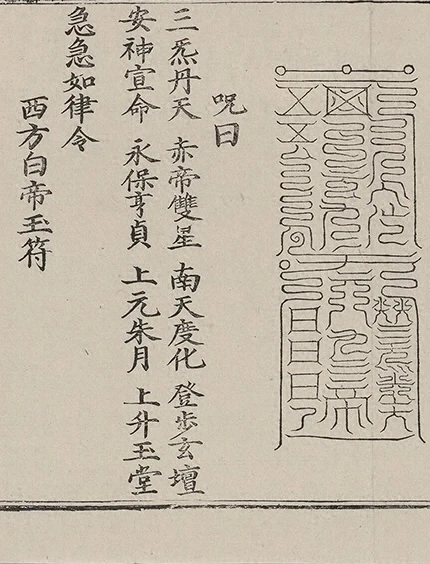 呪曰
三炁丹天 赤帝雙星 南天度化 登步玄壇
安神宣命 永保亨貞 上元朱月 上升玉堂
急急如律令
西方白帝玉符